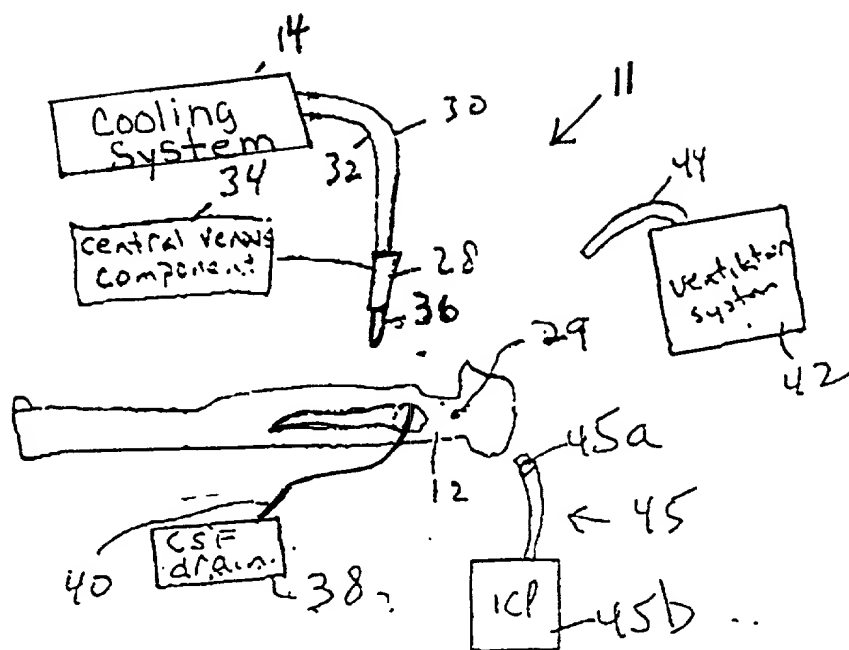 14
Cooling
System
30
32
11
34
central venous
component
28
36
44
ventilator
system
42
29
12
45a
45
40
CSF
drain
38
ICP
45b